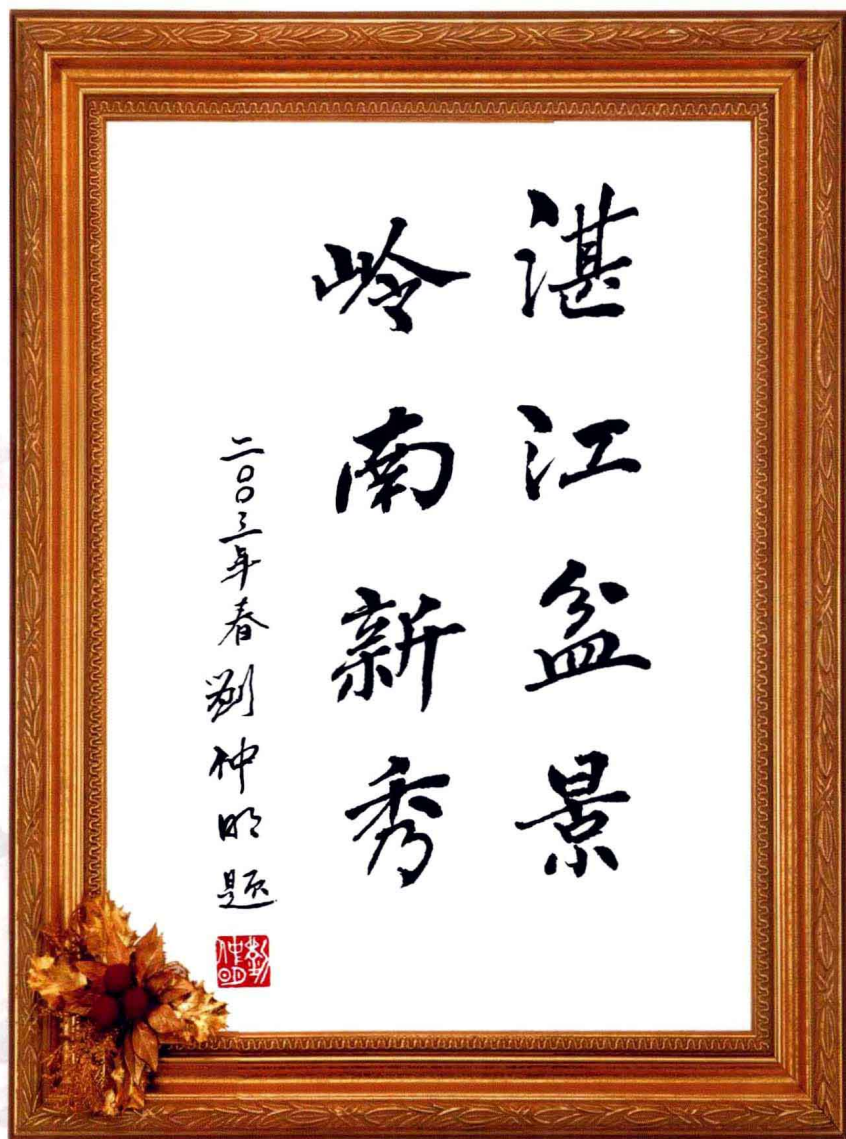 湛江盆景
岭南新秀
二〇〇三年春劉仲明题
劉仲明